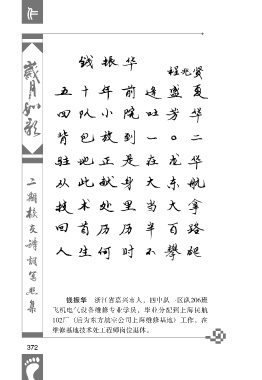 作
岁月如歌
二期校友诗词写照集
钱振华
程兆贤
五十年前逢盛夏
四队小院吐芳华
背包放到一〇二
驻地正是在龙华
从此献身大东航
技术处里当大拿
回首历历半百路
人生何时不攀爬
钱振华 浙江省嘉兴市人，四中队一区队206班
飞机电气设备维修专业学员。毕业分配到上海民航
102厂（后为东方航空公司上海维修基地）工作。在
维修基地技术处工程师岗位退休。
372